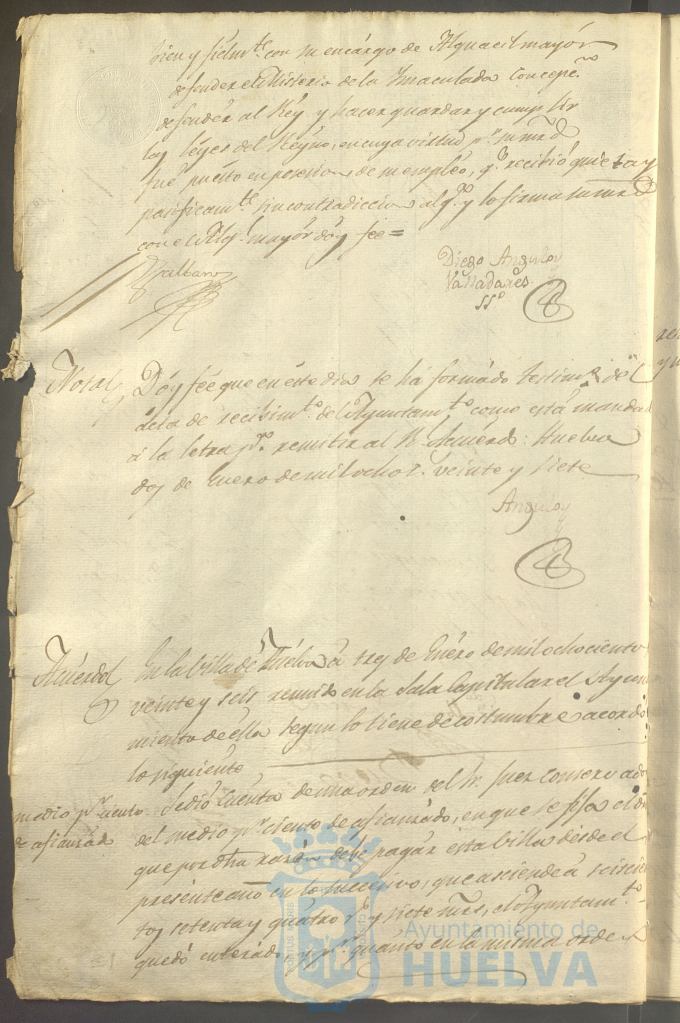 bien y fielmte. con su encargo de Alguacil mayór
defender el Misterio de la Inmaculada Concepcn.
defender al Rey y hacer guardar y cumplir
las leyes del Reyno, en cuya virtud pr. su mrd.
fué puesto en posesion de su empleo, q. recibió quieta y
pacificamte. sin contradiccion algª. y lo firma su mrd
con el Alg. mayor doy fee=
Diego Angulo y
Valladares
SSº
Nota Doy fée que en éste dia se ha formádo testimº. del
ácta de recibimto. del Ayuntamto. como está mandado
á la letra pª. remitir al Rl. Acuerdo: Huelva
dos de Enero de mil ochos. veinte y siete
Angulo
Acuerdo En la Villa de Huelva á tres de Enéro de mil ochociento
veinte y seis reunido en la Sala Capitular el Ayun
miento de ella segun lo tiene de costumbre acordó
lo siguiente
medio pr. ciento
de afianzádo
Se dió cuenta de una orden del Sr. Juez conservador
del medio pr. ciento de afianzado, en que se fija el
que por dha razón debe pagar esta Villa desde el
presente año en lo succesivo, que asciende á seiscien
tos setenta y quatro rs. y siete mrs, el Ayuntamto.
quedó enterádo, y pr. quanto en la misma orden
Ayuntamiento de
HUELVA